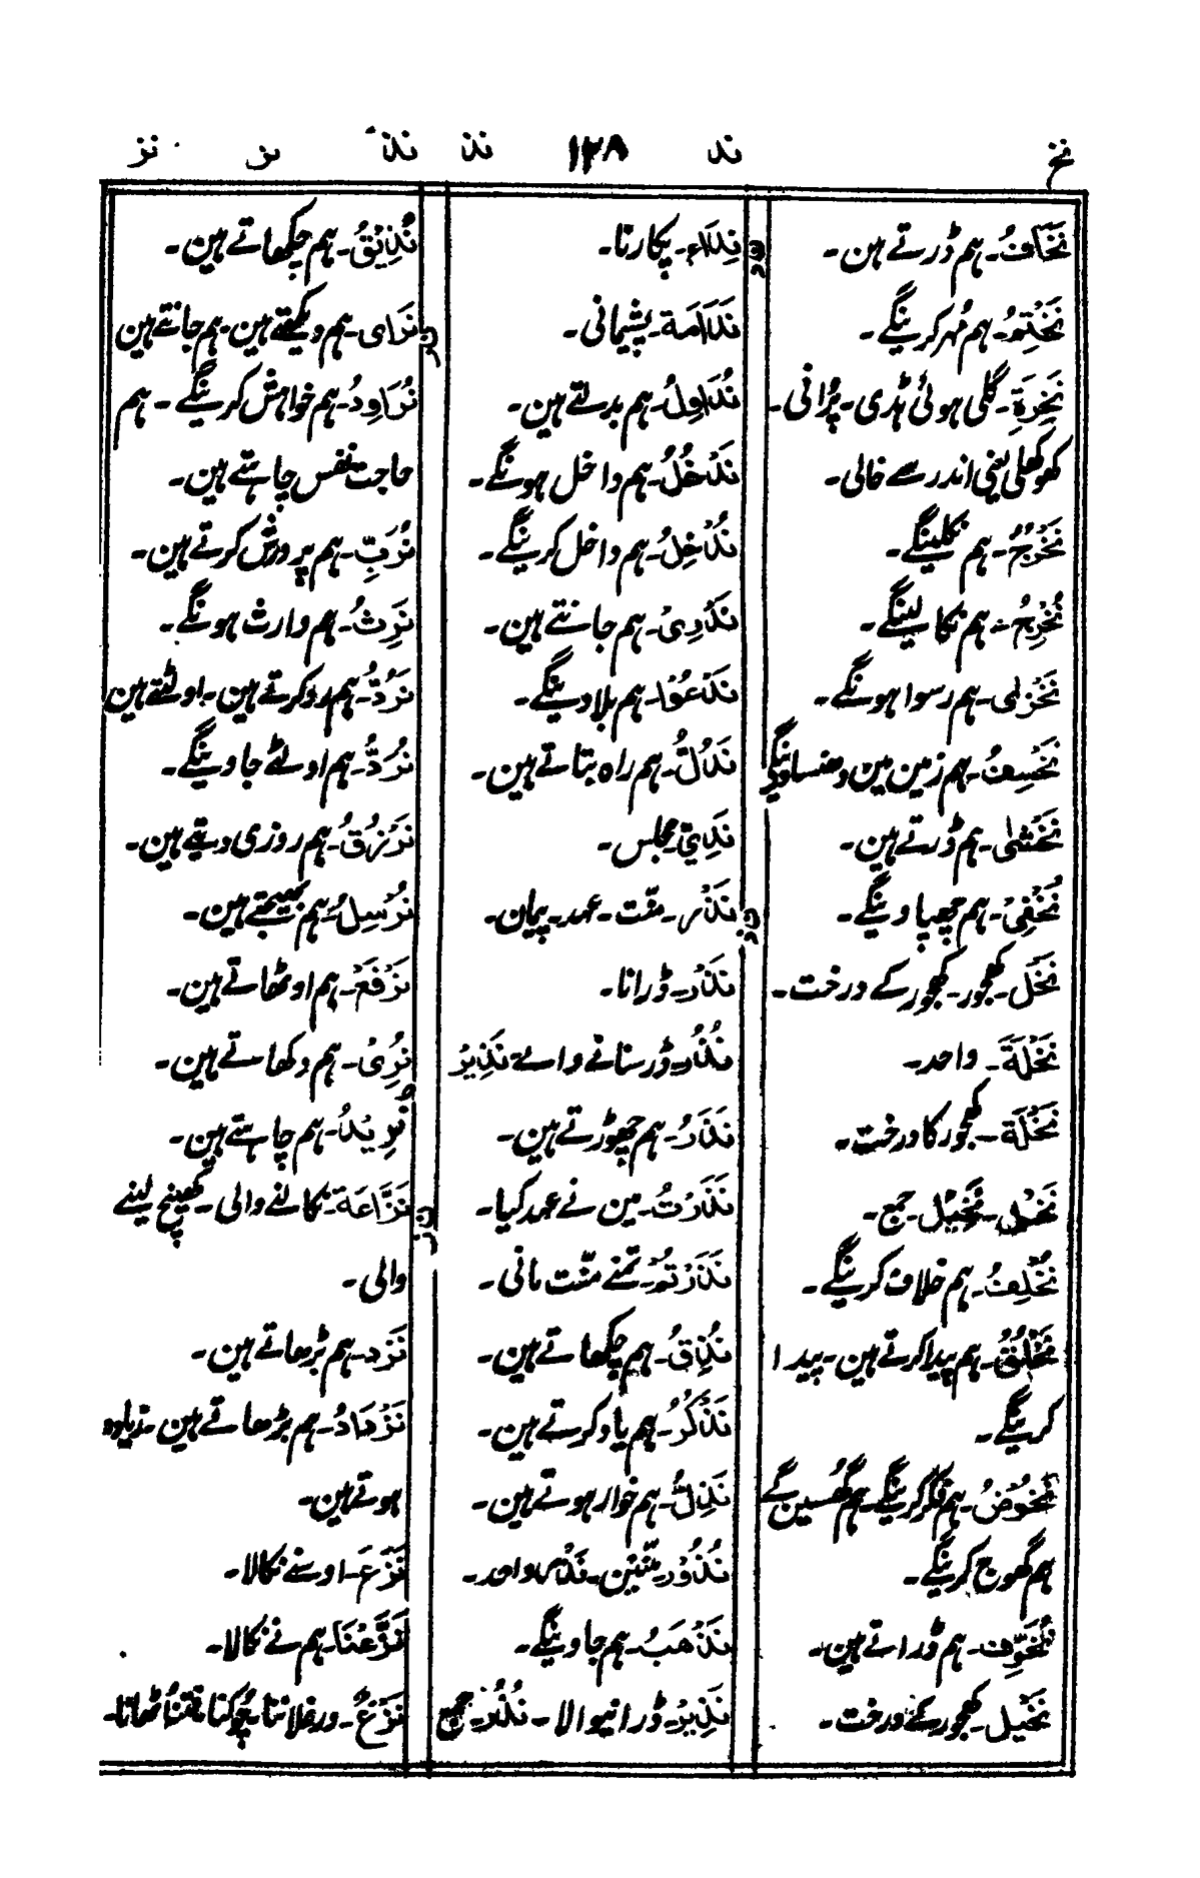 نخ ند ۱۲۸ نذ نذ نر نز
نَخَافُ۔ ہم ڈرتے ہین۔
نَخْتِمُ۔ ہم مُہر کرینگے۔
نَخِرَةِ۔ گلی ہوئی ہڈی۔ پُرانی۔
کوکھلی یعنی اندر سے خالی۔
نَخْرُجُ۔ ہم نکلینگے۔
نُخْرِجُ۔ ہم نکالینگے۔
نَخْزٰی۔ ہم رسوا ہونگے۔
نَخْسِفُ۔ ہم زمین مین دھنساوینگے
نَخْشٰی۔ ہم ڈرتے ہین۔
نُخْفِیْ۔ ہم چھپاوینگے۔
نَخْل۔ کھجور۔ کھجور کے درخت۔
نَخْلَةَ۔ واحد۔
نَخْلَة۔ کھجور کا درخت۔
نَخْل۔ نَخِیْل۔ جمع۔
نُخْلِفُ۔ ہم خلاف کرینگے۔
نَخْلُقُ۔ ہم پیدا کرتے ہین۔ پیدا
کرینگے۔
نَخُوْضُ۔ ہم فکر کرینگے۔ ہم گھسین گے
ہم کھوج کرینگے۔
نُخَوِّف۔ ہم ڈراتے ہین۔
نَخِیْل۔ کھجور کے درخت۔
ند
نِدَاء۔ پکارنا۔
نَدَامَة۔ پشیمانی۔
نُدَاوِلُ۔ ہم بدلتے ہین۔
نَدْخُلُ۔ ہم داخل ہونگے۔
نُدْخِلُ۔ ہم داخل کرینگے۔
نَدْرِیْ۔ ہم جانتے ہین۔
نَدْعُوْا۔ ہم بلاوینگے۔
نَدُلُّ۔ ہم راہ بتاتے ہین۔
نَدِیّ۔ مجلس۔
نذ
نَذْر۔ منّت۔ عہد۔ پیمان۔
نَذْر۔ ڈرانا۔
نُذُر۔ ڈر سنانے والے۔ نَذِیْرُ
نَذَرُ۔ ہم چھوڑتے ہین۔
نَذَرْتُ۔ مین نے عہد کیا۔
نَذَرْتُمْ۔ تمنے منّت مانی۔
نُذِقُ۔ ہم چکھاتے ہین۔
نَذْکُرُ۔ ہم یاد کرتے ہین۔
نَذِلُّ۔ ہم خوار ہوتے ہین۔
نُذُوْر۔ منّتین۔ نَذْر واحد۔
نَذْهَبُ۔ ہم جاوینگے۔
نَذِیْرُ۔ ڈرانیوالا۔ نُذُر۔ جمع
نُذِیْقُ۔ ہم چکھاتے ہین۔
نر
نَرَای۔ ہم دیکھتے ہین۔ ہم جانتے ہین
نُرَاوِدُ۔ ہم خواہش کرینگے۔ ہم
حاجت نفس چاہتے ہین۔
نُرَبِّ۔ ہم پرورش کرتے ہین۔
نَرِثُ۔ ہم وارث ہونگے۔
نَرُدُّ۔ ہم رد کرتے ہین۔ اولٹتے ہین
نُرَدُّ۔ ہم اولٹے جاوینگے۔
نَرْزُقُ۔ ہم روزی دیتے ہین۔
نُرْسِلُ۔ ہم بھیجتے ہین۔
نَرْفَعُ۔ ہم اوٹھاتے ہین۔
نُرِیْ۔ ہم دکھاتے ہین۔
نُرِیْدُ۔ ہم چاہتے ہین۔
نز
نَزَّاعَة۔ نکالنے والی۔ کھینچ لینے
والی۔
نَزِد۔ ہم بڑھاتے ہین۔
نَزْدَادُ۔ ہم بڑھاتے ہین۔ زیادہ
ہوتے ہین۔
نَزَعَ۔ اوسنے نکالا۔
نَزَعْنَا۔ ہم نے نکالا۔
نَزْغٌ۔ ورغلاننا۔ چُوکنا۔ فتنا اُٹھانا۔